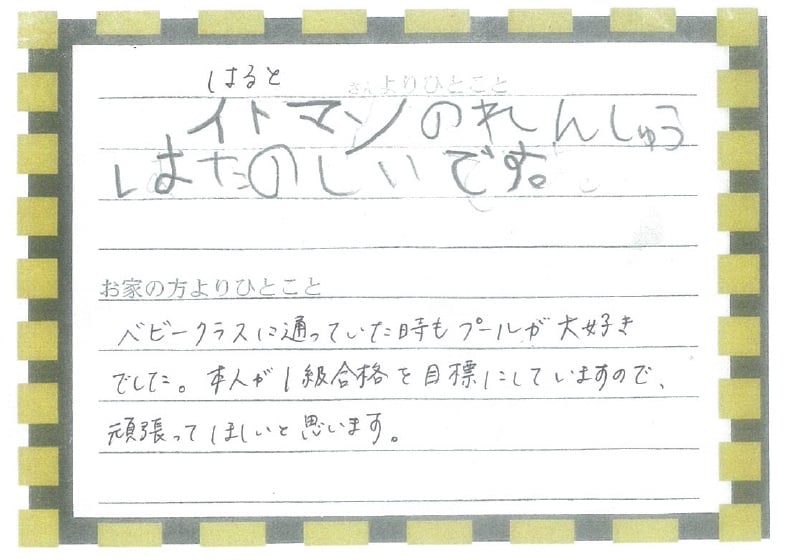 はると さんよりひとこと
イトマンのれんしゅう
はたのしいです。
お家の方よりひとこと
ベビークラスに通っていた時もプールが大好き
でした。本人が1級合格を目標にしていますので、
頑張ってほしいと思います。